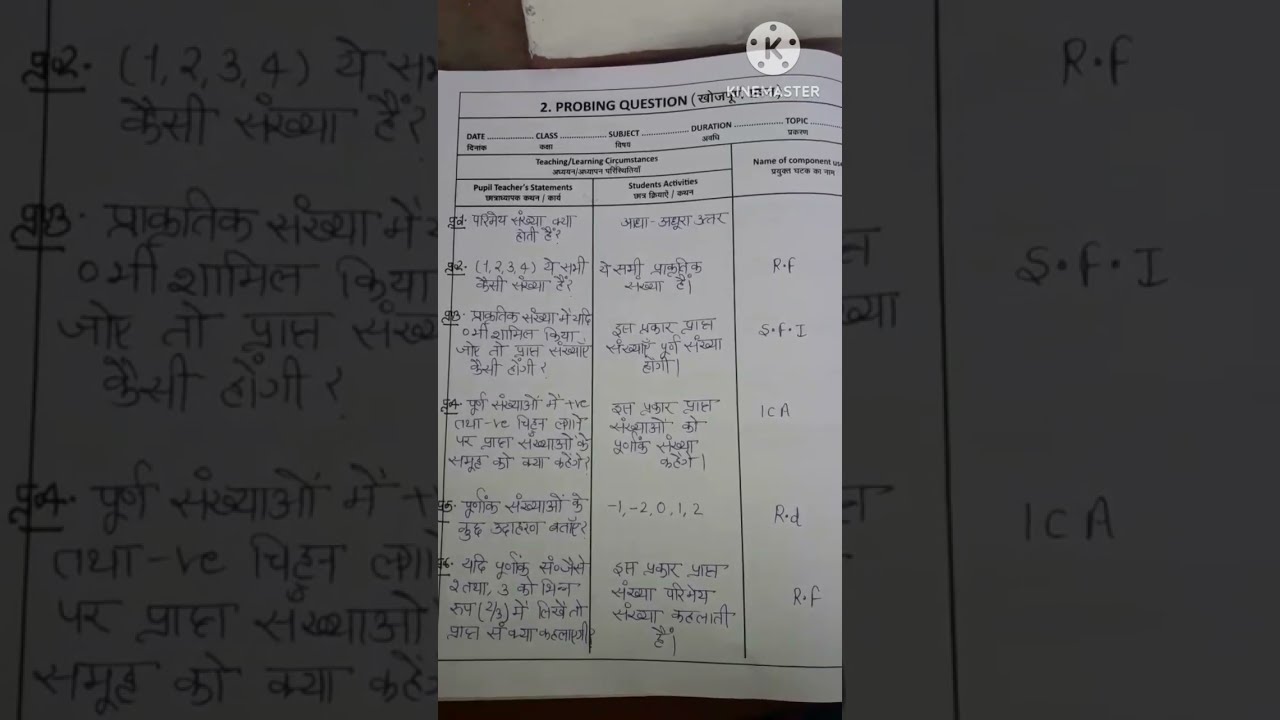 KINEMASTER
2. PROBING QUESTION (खोजपूर्ण
DATE .................. CLASS .................. SUBJECT .................. DURATION .................. TOPIC
दिनांक कक्षा विषय अवधि प्रकरण
Teaching/Learning Circumstances
अध्ययन/अध्यापन परिस्थितियाँ
Name of component use
प्रयुक्त घटक का नाम
Pupil Teacher's Statements
छात्राध्यापक कथन / कार्य
Students Activities
छात्र क्रियाऐं / कथन
प्र1. परिमेय संख्या क्या
होती हैं?
आधा-अधूरा उत्तर
प्र2. (1,2,3,4) ये सभी
कैसी संख्या हैं?
ये सभी प्राकृतिक
संख्या हैं।
R.f
प्र3. प्राकृतिक संख्या में यदि
०भी शामिल किया
जाए तो प्राप्त संख्याएँ
कैसी होंगी?
इस प्रकार प्राप्त
संख्याएँ पूर्ण संख्या
होंगी।
S.f.I
प्र4. पूर्ण संख्याओं में +ve
तथा -ve चिह्न लगाने
पर प्राप्त संख्याओं के
समूह को क्या कहेंगे?
इस प्रकार प्राप्त
संख्याओं को
पूर्णांक संख्या
कहेंगे।
ICA
प्र5. पूर्णांक संख्याओं के
कुछ उदाहरण बताएँ?
-1, -2, 0, 1, 2
R.d
प्र6. यदि पूर्णांक सं० जैसे
2 तथा, 3 को भिन्न
रूप (2/3) में लिखें तो
प्राप्त सं क्या कहलाएगी?
इस प्रकार प्राप्त
संख्या परिमेय
संख्या कहलाती
हैं।
R.f